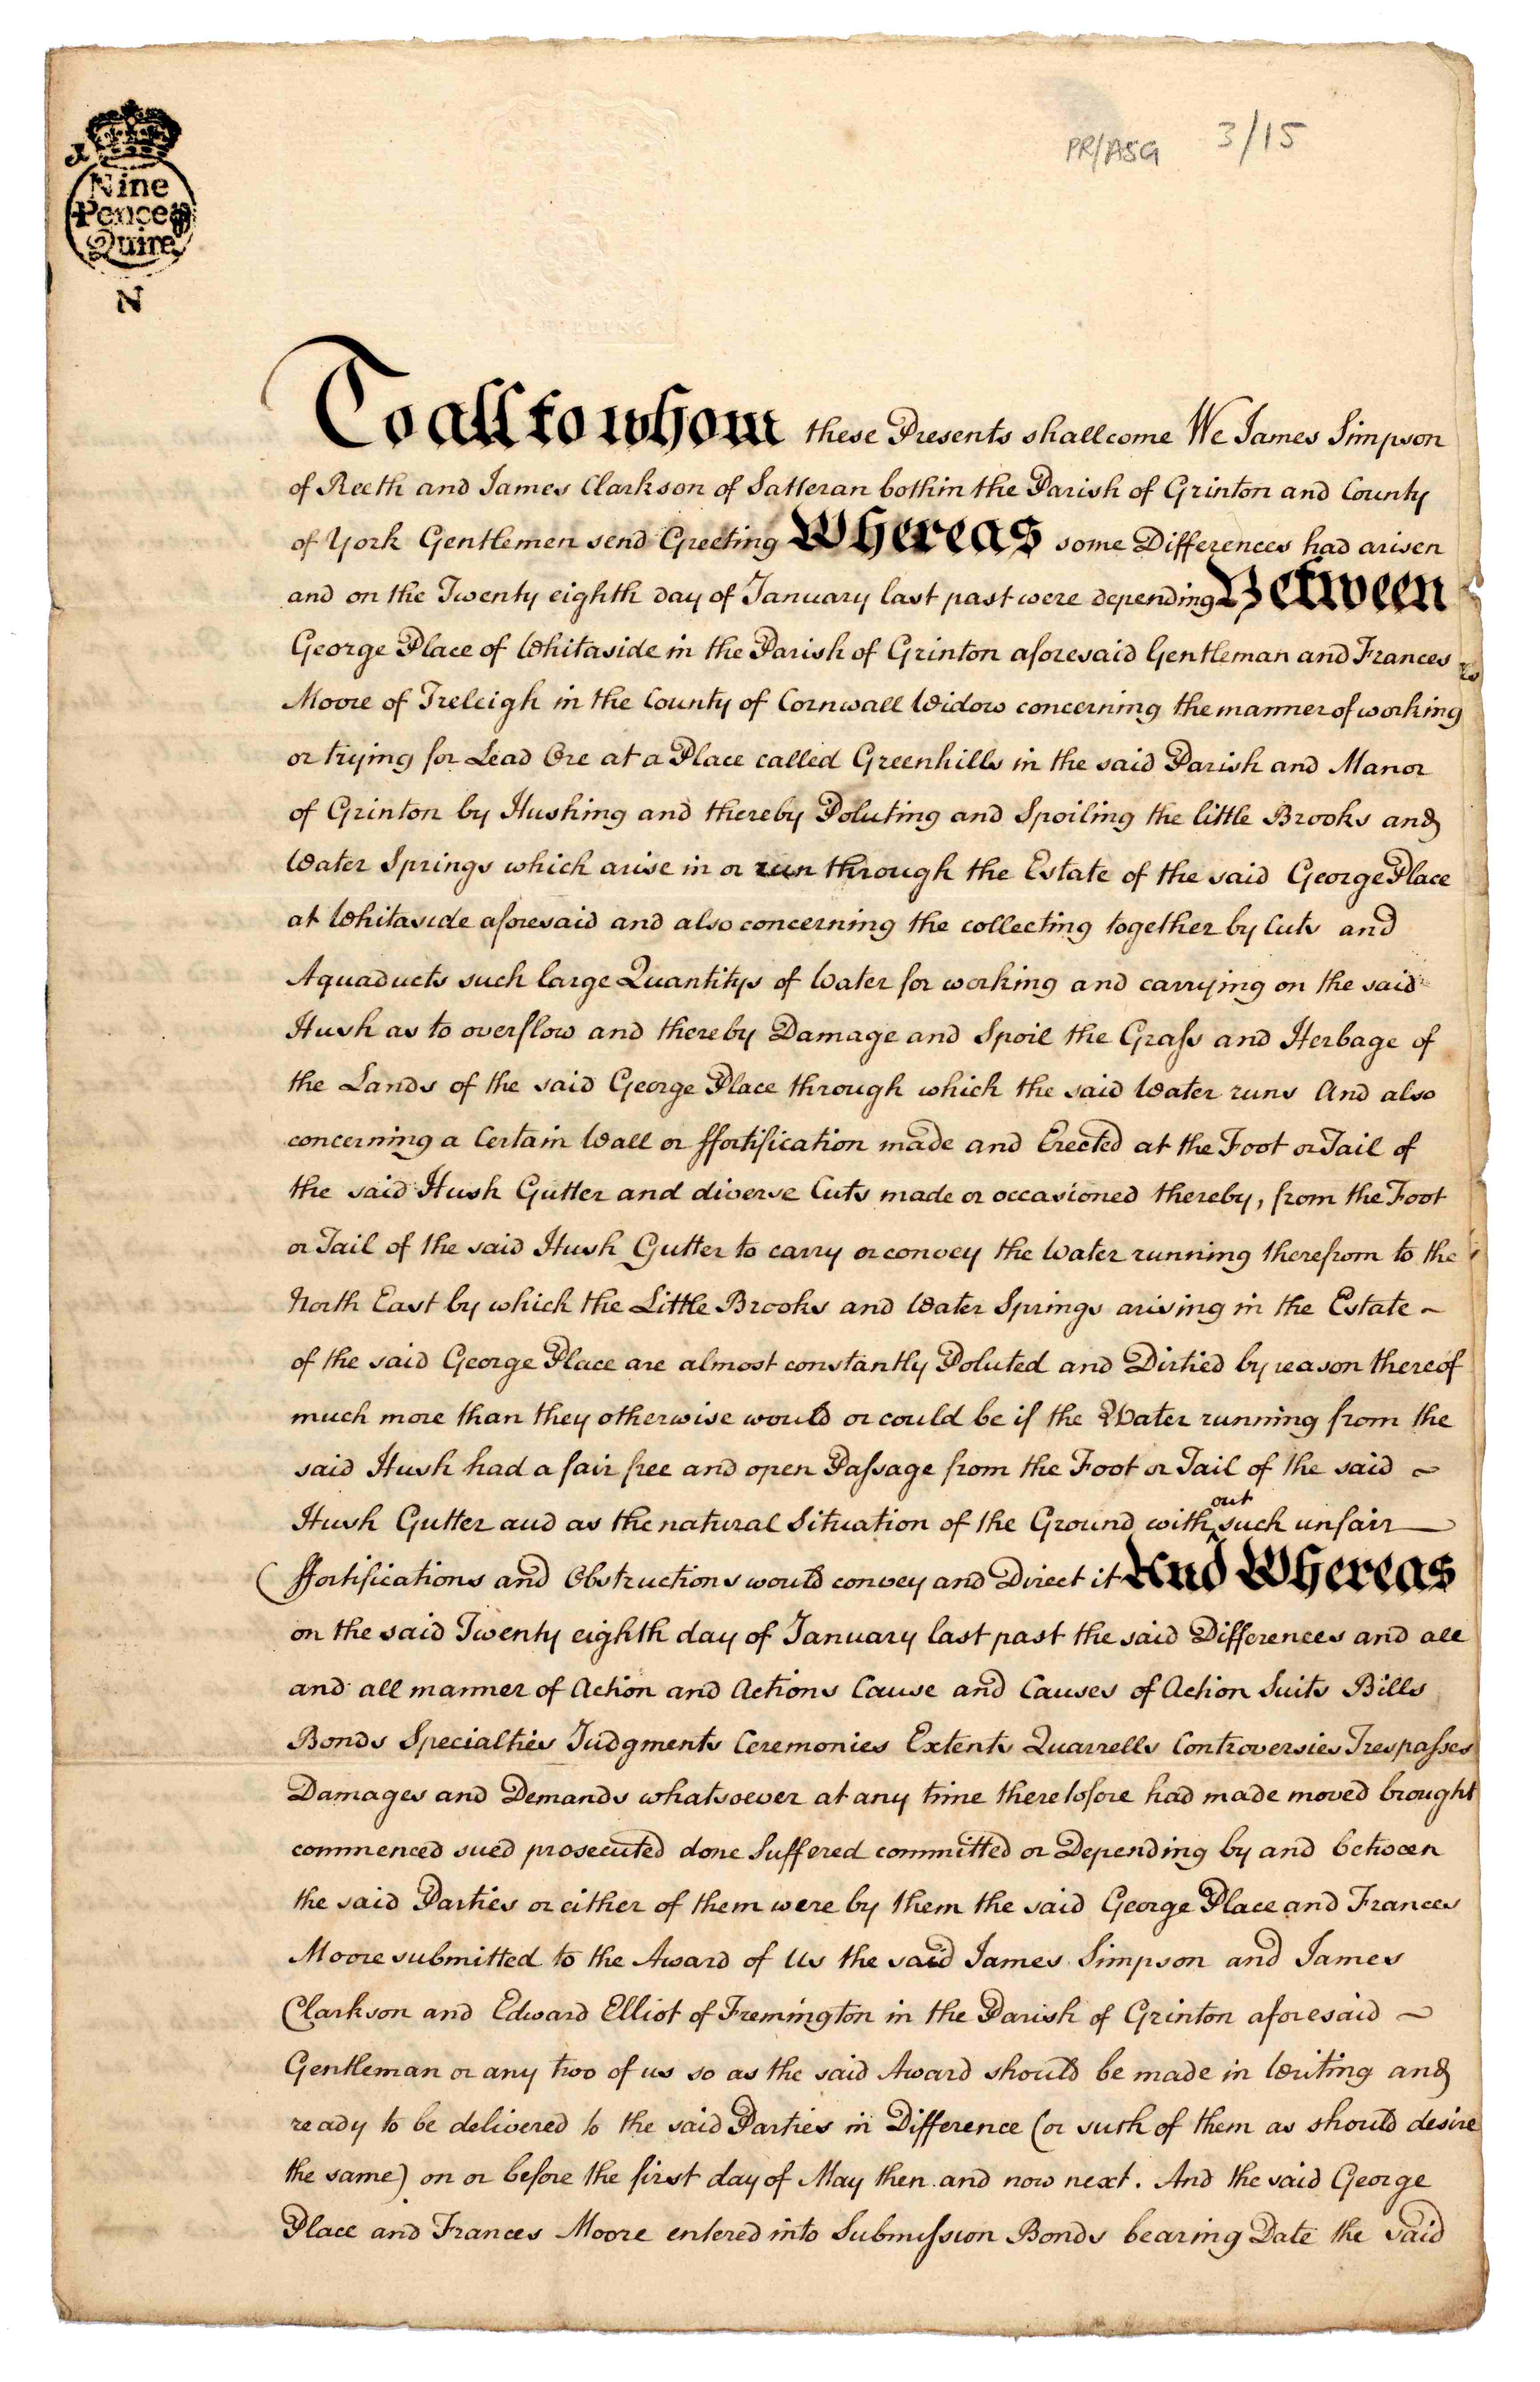 PR/ASG 3/15
J
Nine
Pence p
Quire
N
SHILLING
To all to whom these Presents shall come We James Simpson
of Reeth and James Clarkson of Satteran both in the Parish of Grinton and County
of York Gentlemen send Greeting Whereas some Differences had arisen
and on the Twenty eighth day of January last past were depending Between
George Place of Whitaside in the Parish of Grinton aforesaid Gentleman and Frances
Moore of Treleigh in the County of Cornwall Widow concerning the manner of working
or trying for Lead Ore at a Place called Greenhills in the said Parish and Manor
of Grinton by Hushing and thereby Poluting and Spoiling the little Brooks and
Water Springs which arise in or run through the Estate of the said George Place
at Whitaside aforesaid and also concerning the collecting together by Cuts and
Aquaducts such large Quantitys of Water for working and carrying on the said
Hush as to overflow and thereby Damage and Spoil the Graſs and Herbage of
the Lands of the said George Place through which the said Water runs And also
concerning a Certain Wall or ffortification made and Erected at the Foot or Tail of
the said Hush Gutter and diverse Cuts made or occasioned thereby, from the Foot
or Tail of the said Hush Gutter to carry or convey the Water running therefrom to the
North East by which the Little Brooks and Water Springs arising in the Estate ~
of the said George Place are almost constantly Poluted and Dirtied by reason thereof
much more than they otherwise would or could be if the Water running from the
said Hush had a fair free and open Paſsage from the Foot or Tail of the said ~
Hush Gutter aud as the natural Situation of the Ground with^out such unfair
ffortifications and Obstructions would convey and Direct it And Whereas
on the said Twenty eighth day of January last past the said Differences and all
and all manner of Action and Actions Cause and Causes of Action Suits Bills
Bonds Specialties Judgments Ceremonies Extents Quarrells Controversies Trespaſses
Damages and Demands whatsoever at any time theretofore had made moved brought
commenced sued prosecuted done Suffered committed or Depending by and between
the said Parties or either of them were by them the said George Place and Frances
Moore submitted to the Award of Us the said James Simpson and James
Clarkson and Edward Elliot of Fremington in the Parish of Grinton aforesaid ~
Gentleman or any two of us so as the said Award should be made in Writing and
ready to be delivered to the said Parties in Difference (or such of them as should desire
the same) on or before the first day of May then and now next. And the said George
Place and Frances Moore entered into Submiſsion Bonds bearing Date the said